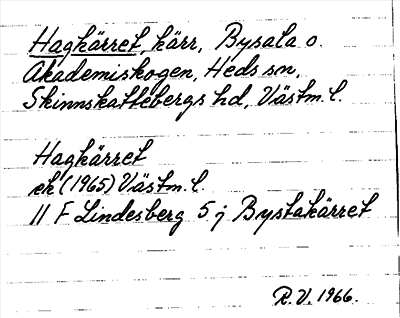 Hagkärret, kärr, Bysala o.
Akademiskogen, Heds sn,
Skinnskattebergs hd, Västm. l.
Hagkärret
ek (1965) Västm. l.
11 F Lindesberg 5 j Bystakärret
R.V. 1966.